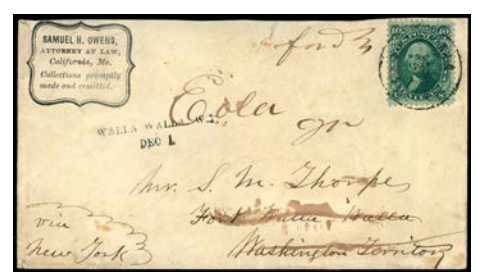 SAMUEL H. OWENS,
ATTORNEY AT LAW,
California, Mo.
Collections promptly
made and remitted.
ford
Eola
WALLA WALLA, W.T.,
DEC 1
Mr. S. M. Thorpe,
Fort Walla Walla
Washington Territory
via
New York